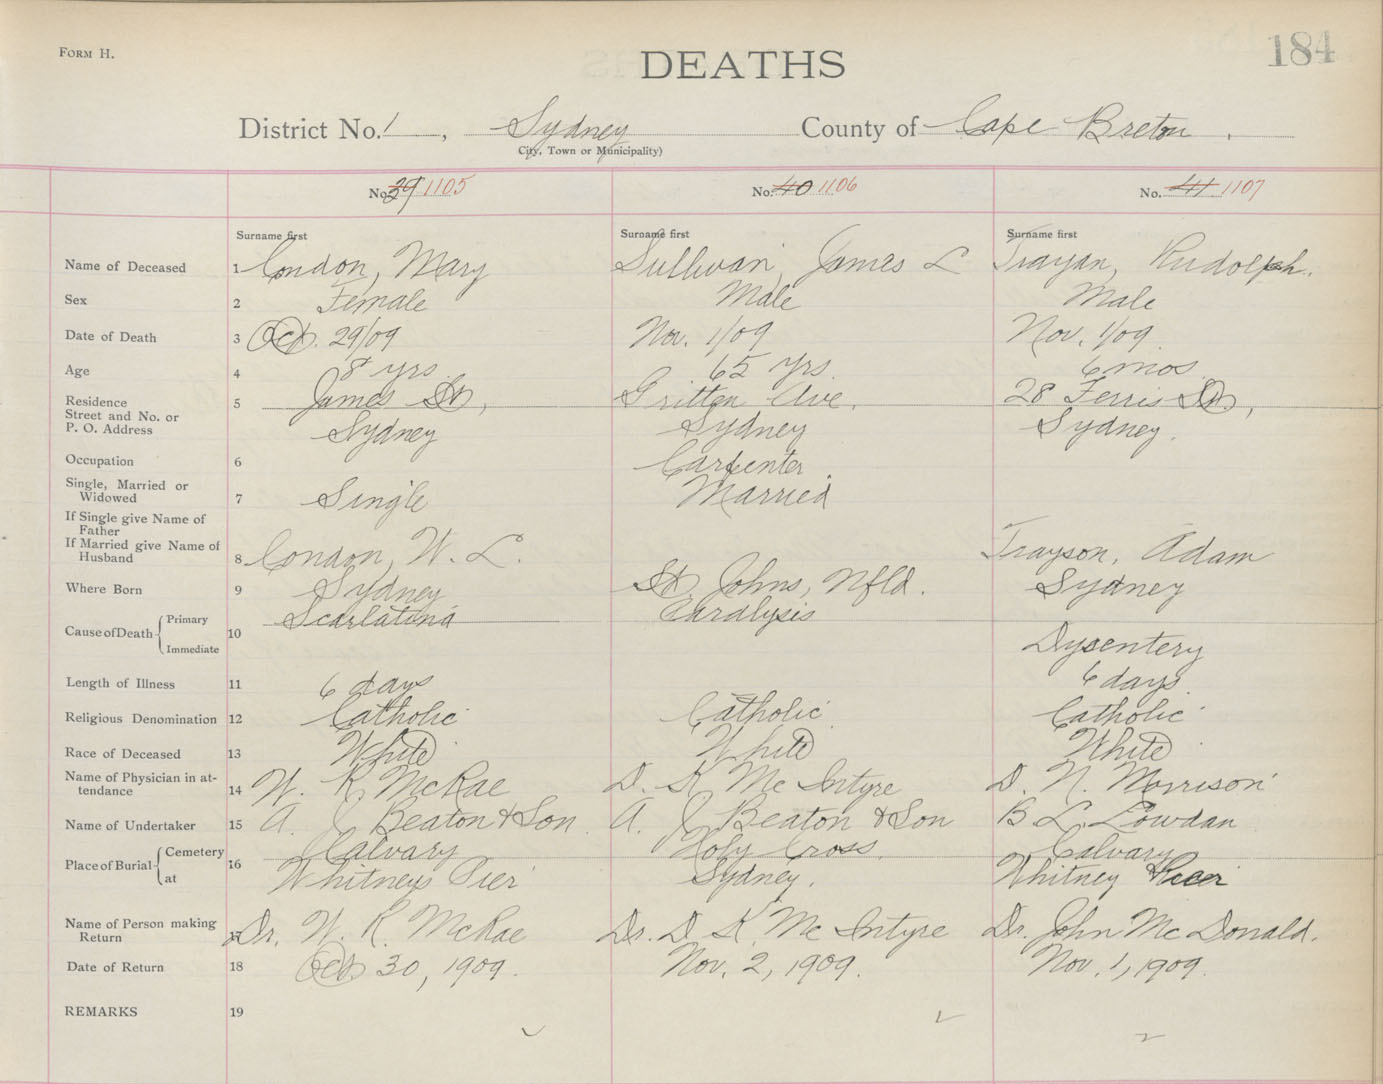 FORM H.
DEATHS
184
District No. 1, Sydney County of Cape Breton.
City, Town or Municipality)
No. 39 1105 No. 40 1106 No. 41 1107
Surname first Surname first Surname first
Name of Deceased 1 Condon, Mary Sullivan, James L Trayan, Rudolph.
Sex 2 Female Male Male
Date of Death 3 Oct. 29/09 Nov. 1/09 Nov. 1/09
Age 4 8 yrs. 65 yrs. 6 mos
Residence 5 James St, Gritten Ave. 28 Ferris St,
Street and No. or
P. O. Address Sydney Sydney Sydney.
Occupation 6 Carpenter
Single, Married or
Widowed 7 Single Married
If Single give Name of
Father
If Married give Name of
Husband 8 Condon, W. L. Trayson, Adam
Where Born 9 Sydney St. Johns, Nfld. Sydney
Cause of Death 10 Primary Scarlatina Paralysis
Immediate Dysentery
Length of Illness 11 6 days 6 days.
Religious Denomination 12 Catholic Catholic Catholic
Race of Deceased 13 White White White
Name of Physician in at-
tendance 14 W. R. McRae D. K. Mc Intyre D. N. Morrison
Name of Undertaker 15 A. J. Beaton & Son. A. J. Beaton & Son B L Lowdan
Place of Burial 16 Cemetery Calvary Holy Cross. Calvary
at Whitneys Pier Sydney. Whitney Pier
Name of Person making
Return 17 Dr. W. R. McRae Dr. D. K. Mc Intyre Dr. John Mc Donald.
Date of Return 18 Oct. 30, 1909. Nov. 2, 1909. Nov. 1, 1909.
REMARKS 19